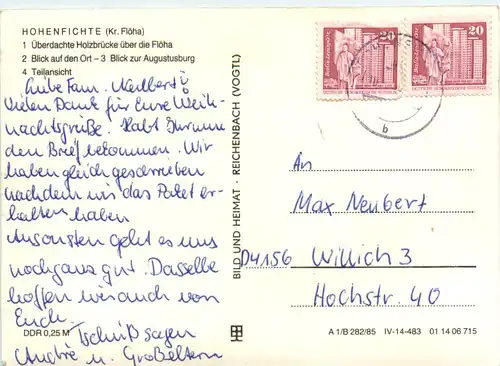 HOHENFICHTE (Kr. Flöha)
1 Überdachte Holzbrücke über die Flöha
2 Blick auf den Ort – 3 Blick zur Augustusburg
4 Teilansicht
Liebe Fam.
Vielen Dank für Eure Weih-
nachtsgrüße. Habt Ihr nun
den Brief bekommen. Wir
haben gleich geschrieben
nachdem wir das Paket er-
halten haben
Ansonsten geht es uns
noch ganz gut. Dasselbe
hoffen wir auch von
Euch.
Tschüß sagen
André u. Großeltern
DDR 0,25 M
BILD UND HEIMAT · REICHENBACH (VOGTL)
20
20
b
An
Max Neubert
D4156 Willich 3
Hochstr. 40
A 1/B 282/85 IV-14-483 01 14 06 715